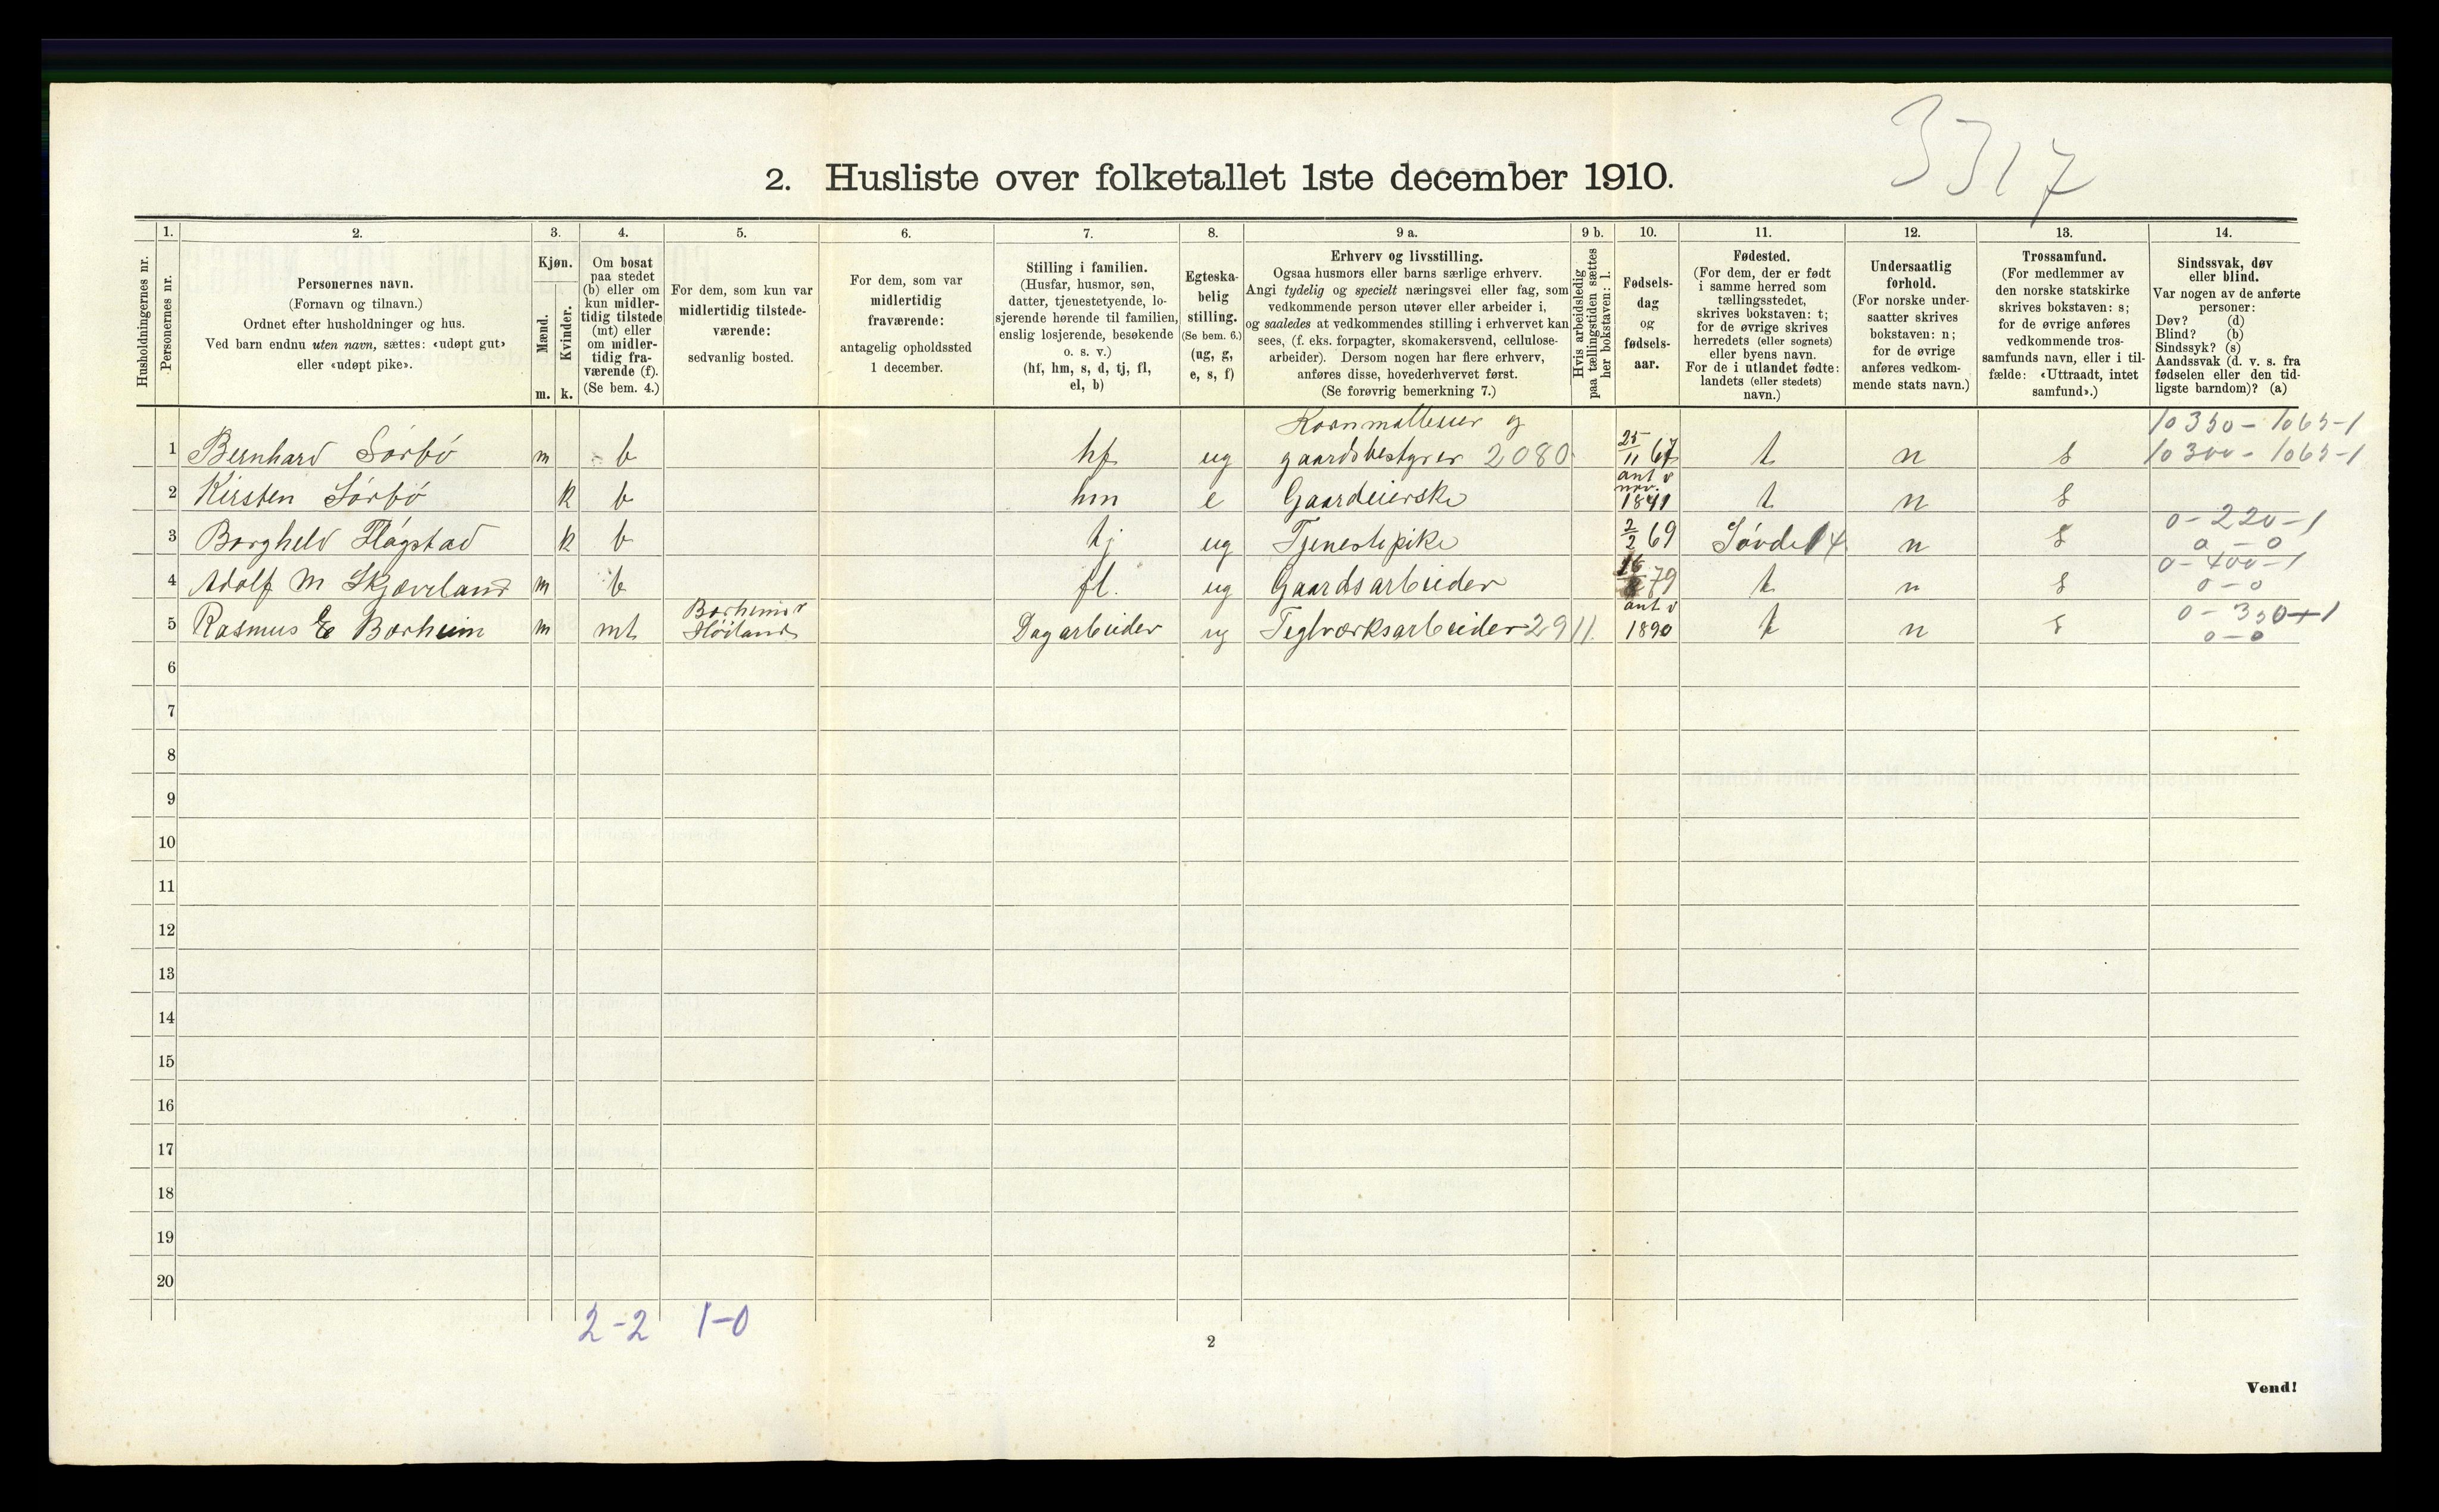 3317
2. Husliste over folketallet 1ste december 1910.
Husholdningernes nr.
1.
Personernes nr.
2.
Personernes navn.
(Fornavn og tilnavn.)
Ordnet efter husholdninger og hus.
Ved barn endnu uten navn, sættes: «udøpt gut»
eller «udøpt pike».
3.
Kjøn.
Mænd.
Kvinder.
m. k.
4.
Om bosat
paa stedet
(b) eller om
kun midler-
tidig tilstede
(mt) eller
om midler-
tidig fra-
værende (f).
(Se bem. 4.)
5.
For dem, som kun var
midlertidig tilstede-
værende:
sedvanlig bosted.
6.
For dem, som var
midlertidig
fraværende:
antagelig opholdssted
1 december.
7.
Stilling i familien.
(Husfar, husmor, søn,
datter, tjenestetyende, lo-
sjerende hørende til familien,
enslig losjerende, besøkende
o. s. v.)
(hf, hm, s, d, tj, fl,
el, b)
8.
Egteska-
belig
stilling.
(Se bem. 6.)
(ug, g,
e, s, f)
9 a.
Erhverv og livsstilling.
Ogsaa husmors eller barns særlige erhverv.
Angi tydelig og specielt næringsvei eller fag, som
vedkommende person utøver eller arbeider i,
og saaledes at vedkommendes stilling i erhvervet kan
sees, (f. eks. forpagter, skomakersvend, cellulose-
arbeider). Dersom nogen har flere erhverv,
anføres disse, hovederhvervet først.
(Se forøvrig bemerkning 7.)
9 b.
Hvis arbeidsledig
paa tællingstiden sættes
her bokstaven: l.
10.
Fødsels-
dag
og
fødsels-
aar.
11.
Fødested.
(For dem, der er født
i samme herred som
tællingsstedet,
skrives bokstaven: t;
for de øvrige skrives
herredets (eller sognets)
eller byens navn.
For de i utlandet fødte:
landets (eller stedets)
navn.)
12.
Undersaatlig
forhold.
(For norske under-
saatter skrives
bokstaven: n;
for de øvrige
anføres vedkom-
mende stats navn.)
13.
Trossamfund.
(For medlemmer av
den norske statskirke
skrives bokstaven: s;
for de øvrige anføres
vedkommende tros-
samfunds navn, eller i til-
fælde: «Uttraadt, intet
samfund».)
14.
Sindssvak, døv
eller blind.
Var nogen av de anførte
personer:
Døv? (d)
Blind? (b)
Sindssyk? (s)
Aandssvak (d. v. s. fra
fødselen eller den tid-
ligste barndom)? (a)
Kornmatteuer og 10350-1065-1
1 Bernhard Sørbø m b hf ug gaardsbestyrer 2080 25/11 67 t n s 10300-1065-1
ant v nov.
2 Kirsten Sørbø k b hm e Gaardeierske 1841 t n s
0-220-1
3 Borgheld Fløgstad k b tj ug Tjenestepike 2/2 69 Søvde 14 n s 0-0
0-400-1
4 Adolf M Skjæveland m b fl. ug Gaardsarbeider 16/8 79 t n s 0-0
Borheim ant v 0-350+1
5 Rasmus E Borheim m mt Høiland Dagarbeider ug Teglværksarbeider 2911. 1890 t n s 0-0
6
7
8
9
10
11
12
13
14
15
16
17
18
19
20
2-2 1-0
2
Vend!